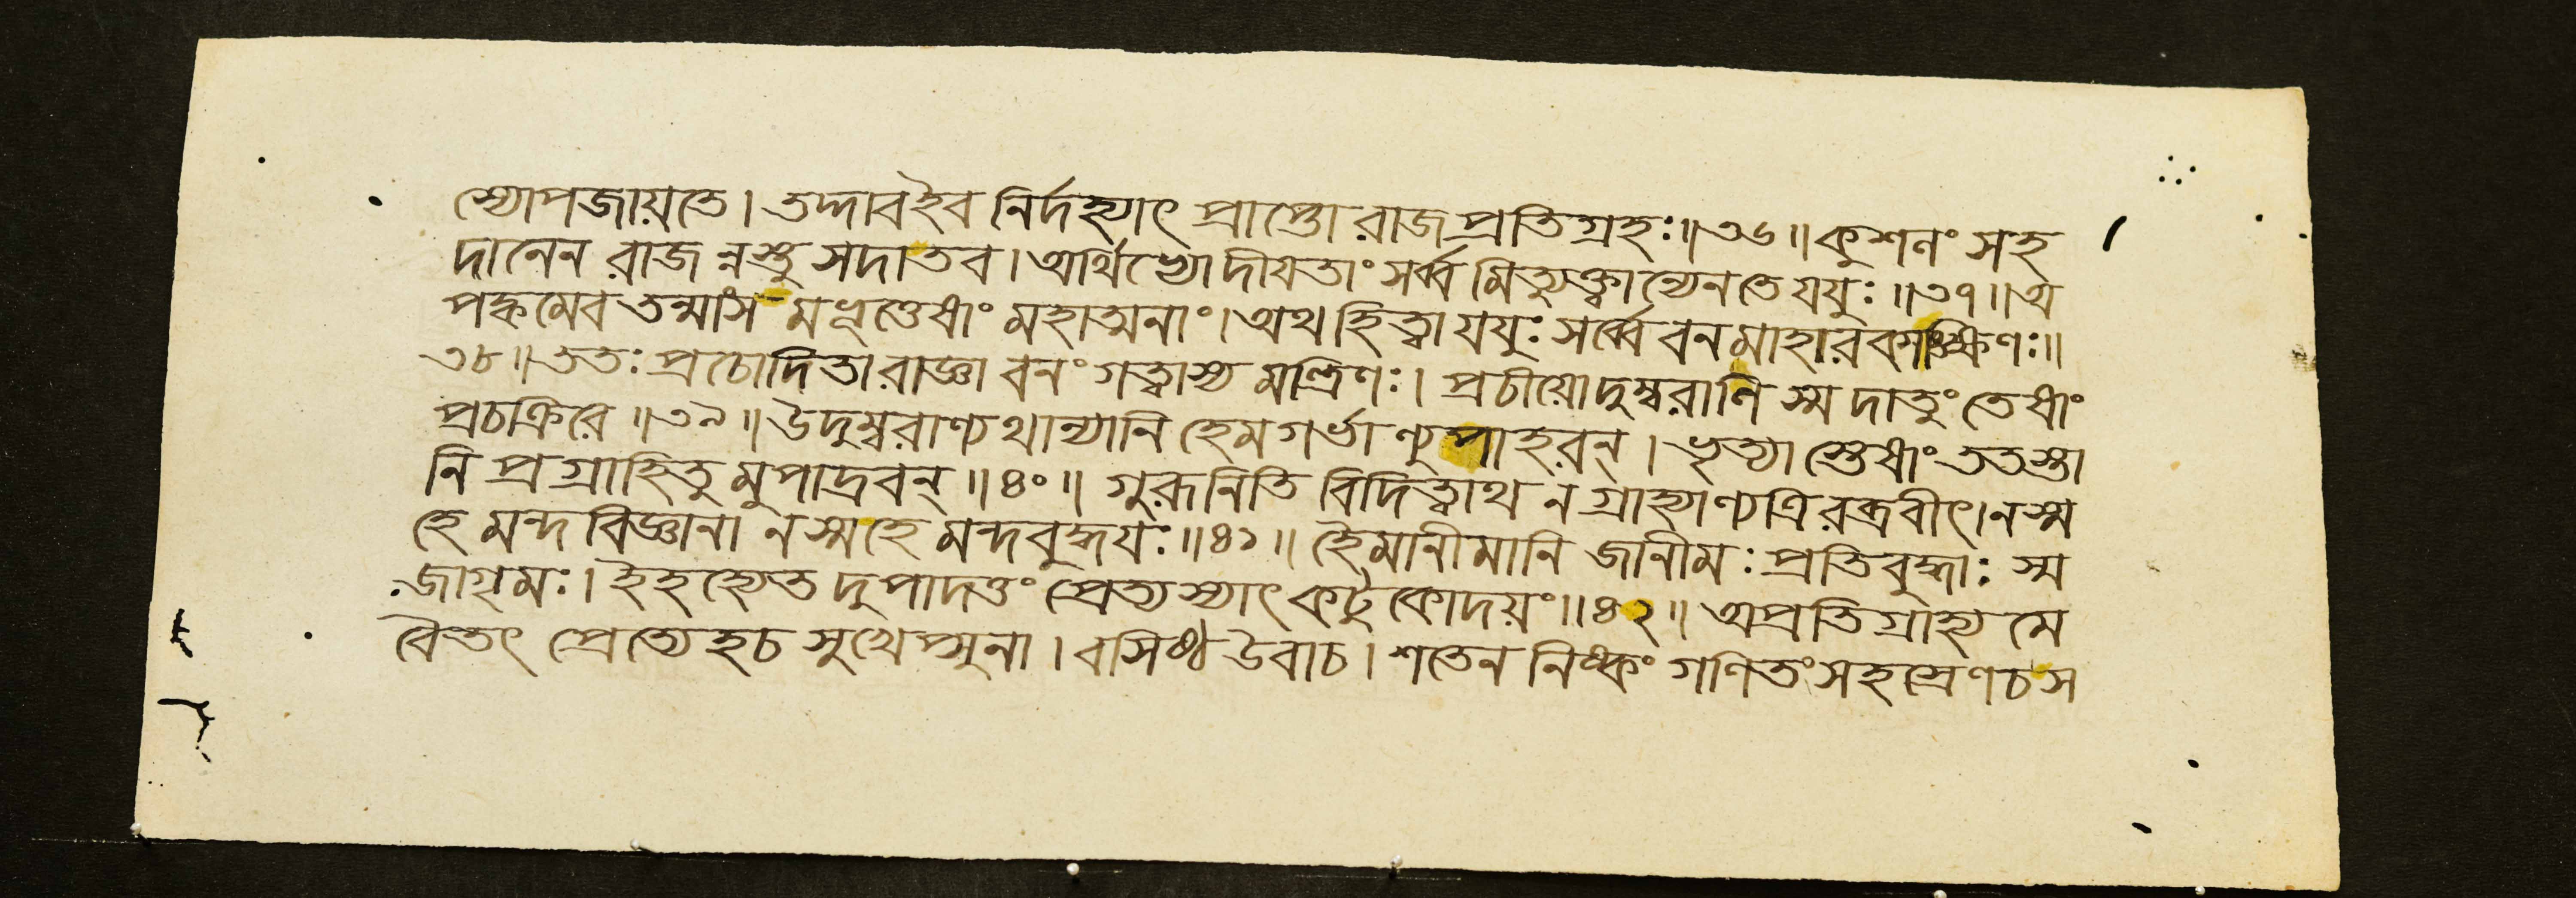 স্যোপজায়তে। তদ্দাবইব নির্দহ্যাৎ প্রাপ্তো রাজপ্রতিগ্রহঃ॥৩৬॥কুশলং সহ
দানেন রাজন্নস্তু সদা তব। অর্থিভ্যো দীয়তাং সর্ব্বমিত্যুক্ত্বান্যেন তে যযুঃ॥৩৭॥অ
পক্বমেব তন্মাংসমভূত্তেষাং মহাত্মনাং। অথ হিত্বা যযুঃ সর্ব্বে বনমাহারকাঙ্ক্ষিণঃ॥
৩৮॥ততঃ প্রচোদিতা রাজ্ঞা বনং গত্বাস্য মন্ত্রিণঃ। প্রচীয়োদুম্বরানি স্ম দাতুং তেষাং
প্রচক্রিরে॥৩৯॥উদুম্বরাণ্যথান্যানি হেমগর্ভাণ্যুপাহরন্। ভৃত্যাস্তেষাং ততস্তা
নি প্রগ্রাহিতুমুপাদ্রবন্॥৪০॥ গুরূনিতি বিদিত্বাথ ন গ্রাহ্যাণ্যত্রিরব্রবীৎ। নস্ম
হে মন্দবিজ্ঞানা নস্মহে মন্দবুদ্ধয়ঃ॥৪১॥ হৈমানীমানি জানীমঃ প্রতিবুদ্ধাঃ স্ম
জাগৃমঃ। ইহ হ্যেতদুপাদত্তং প্রেত্য স্যাৎ কটুকোদয়ং॥৪২॥ অপ্রতিগ্রাহ্যমে
বৈতৎ প্রেত্যেহ চ সুখেপ্সুনা। বসিষ্ঠ উবাচ। শতেন নিষ্কং গণিতং সহস্রেণ চ স